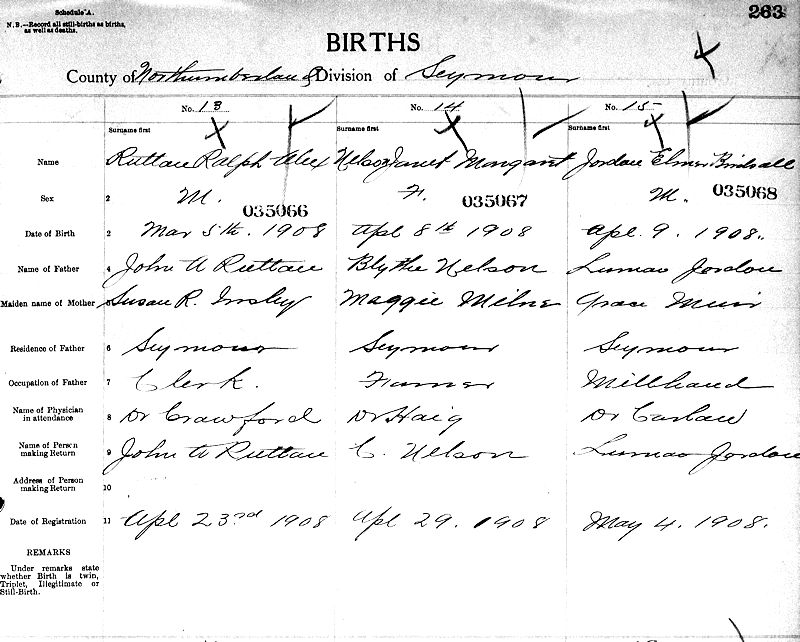 Schedule A.
263
N.B.—Record all still-births as births,
as well as deaths.
BIRTHS
County of Northumberland Division of Seymour
No. 13 No. 14 No. 15
Surname first Surname first Surname first
Name Ruttan Ralph Alex Nelson Janet Margaret Jordan Elmer Birdsall
Sex 2 M. F. M.
035066 035067 035068
Date of Birth 2 Mar 5th. 1908 Apl 8th 1908 Apl. 9. 1908.
Name of Father 4 John A Ruttan Blythe Nelson Luman Jordan
Maiden name of Mother Susan R. Insley Maggie Milne Grace Muir
Residence of Father 6 Seymour Seymour Seymour
Occupation of Father 7 Clerk. Farmer Millhand
Name of Physician
in attendance 8 Dr Crawford Dr Haig Dr Carlaw
Name of Person
making Return 9 John A Ruttan C. Nelson Luman Jordan
Address of Person
making Return 10
Date of Registration 11 Apl 23rd 1908 Apl 29. 1908 May 4. 1908.
REMARKS
Under remarks state
whether Birth is twin,
Triplet, Illegitimate or
Still-Birth.